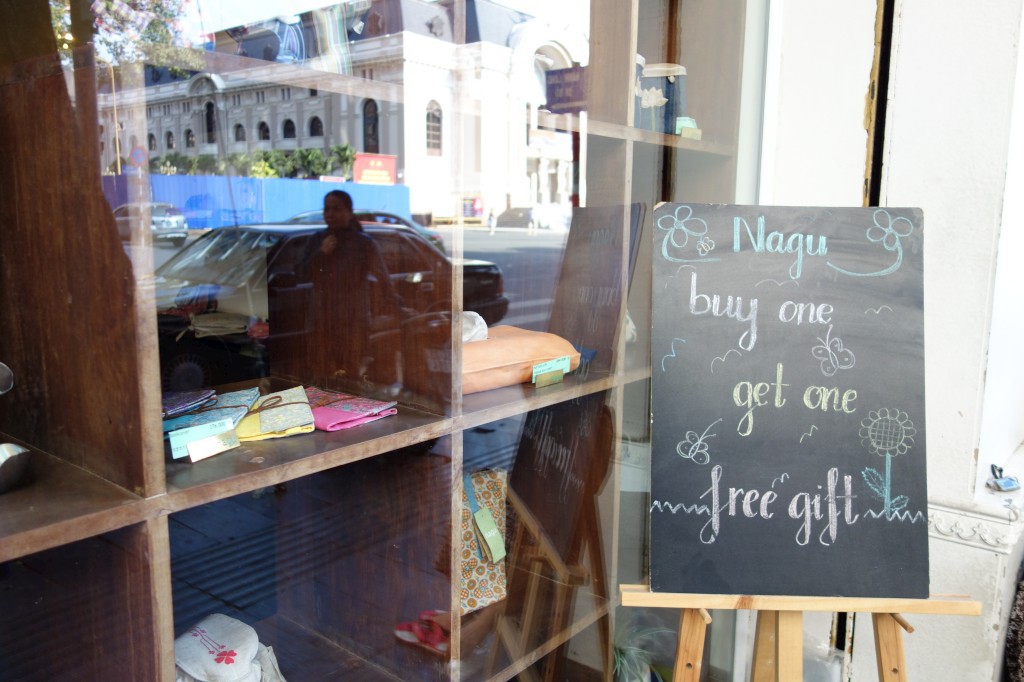 Nagu
buy one
get one
free gift